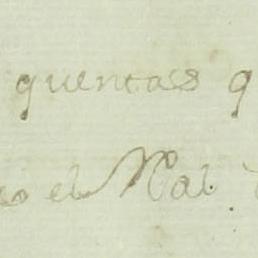 quentas q
el Ral.